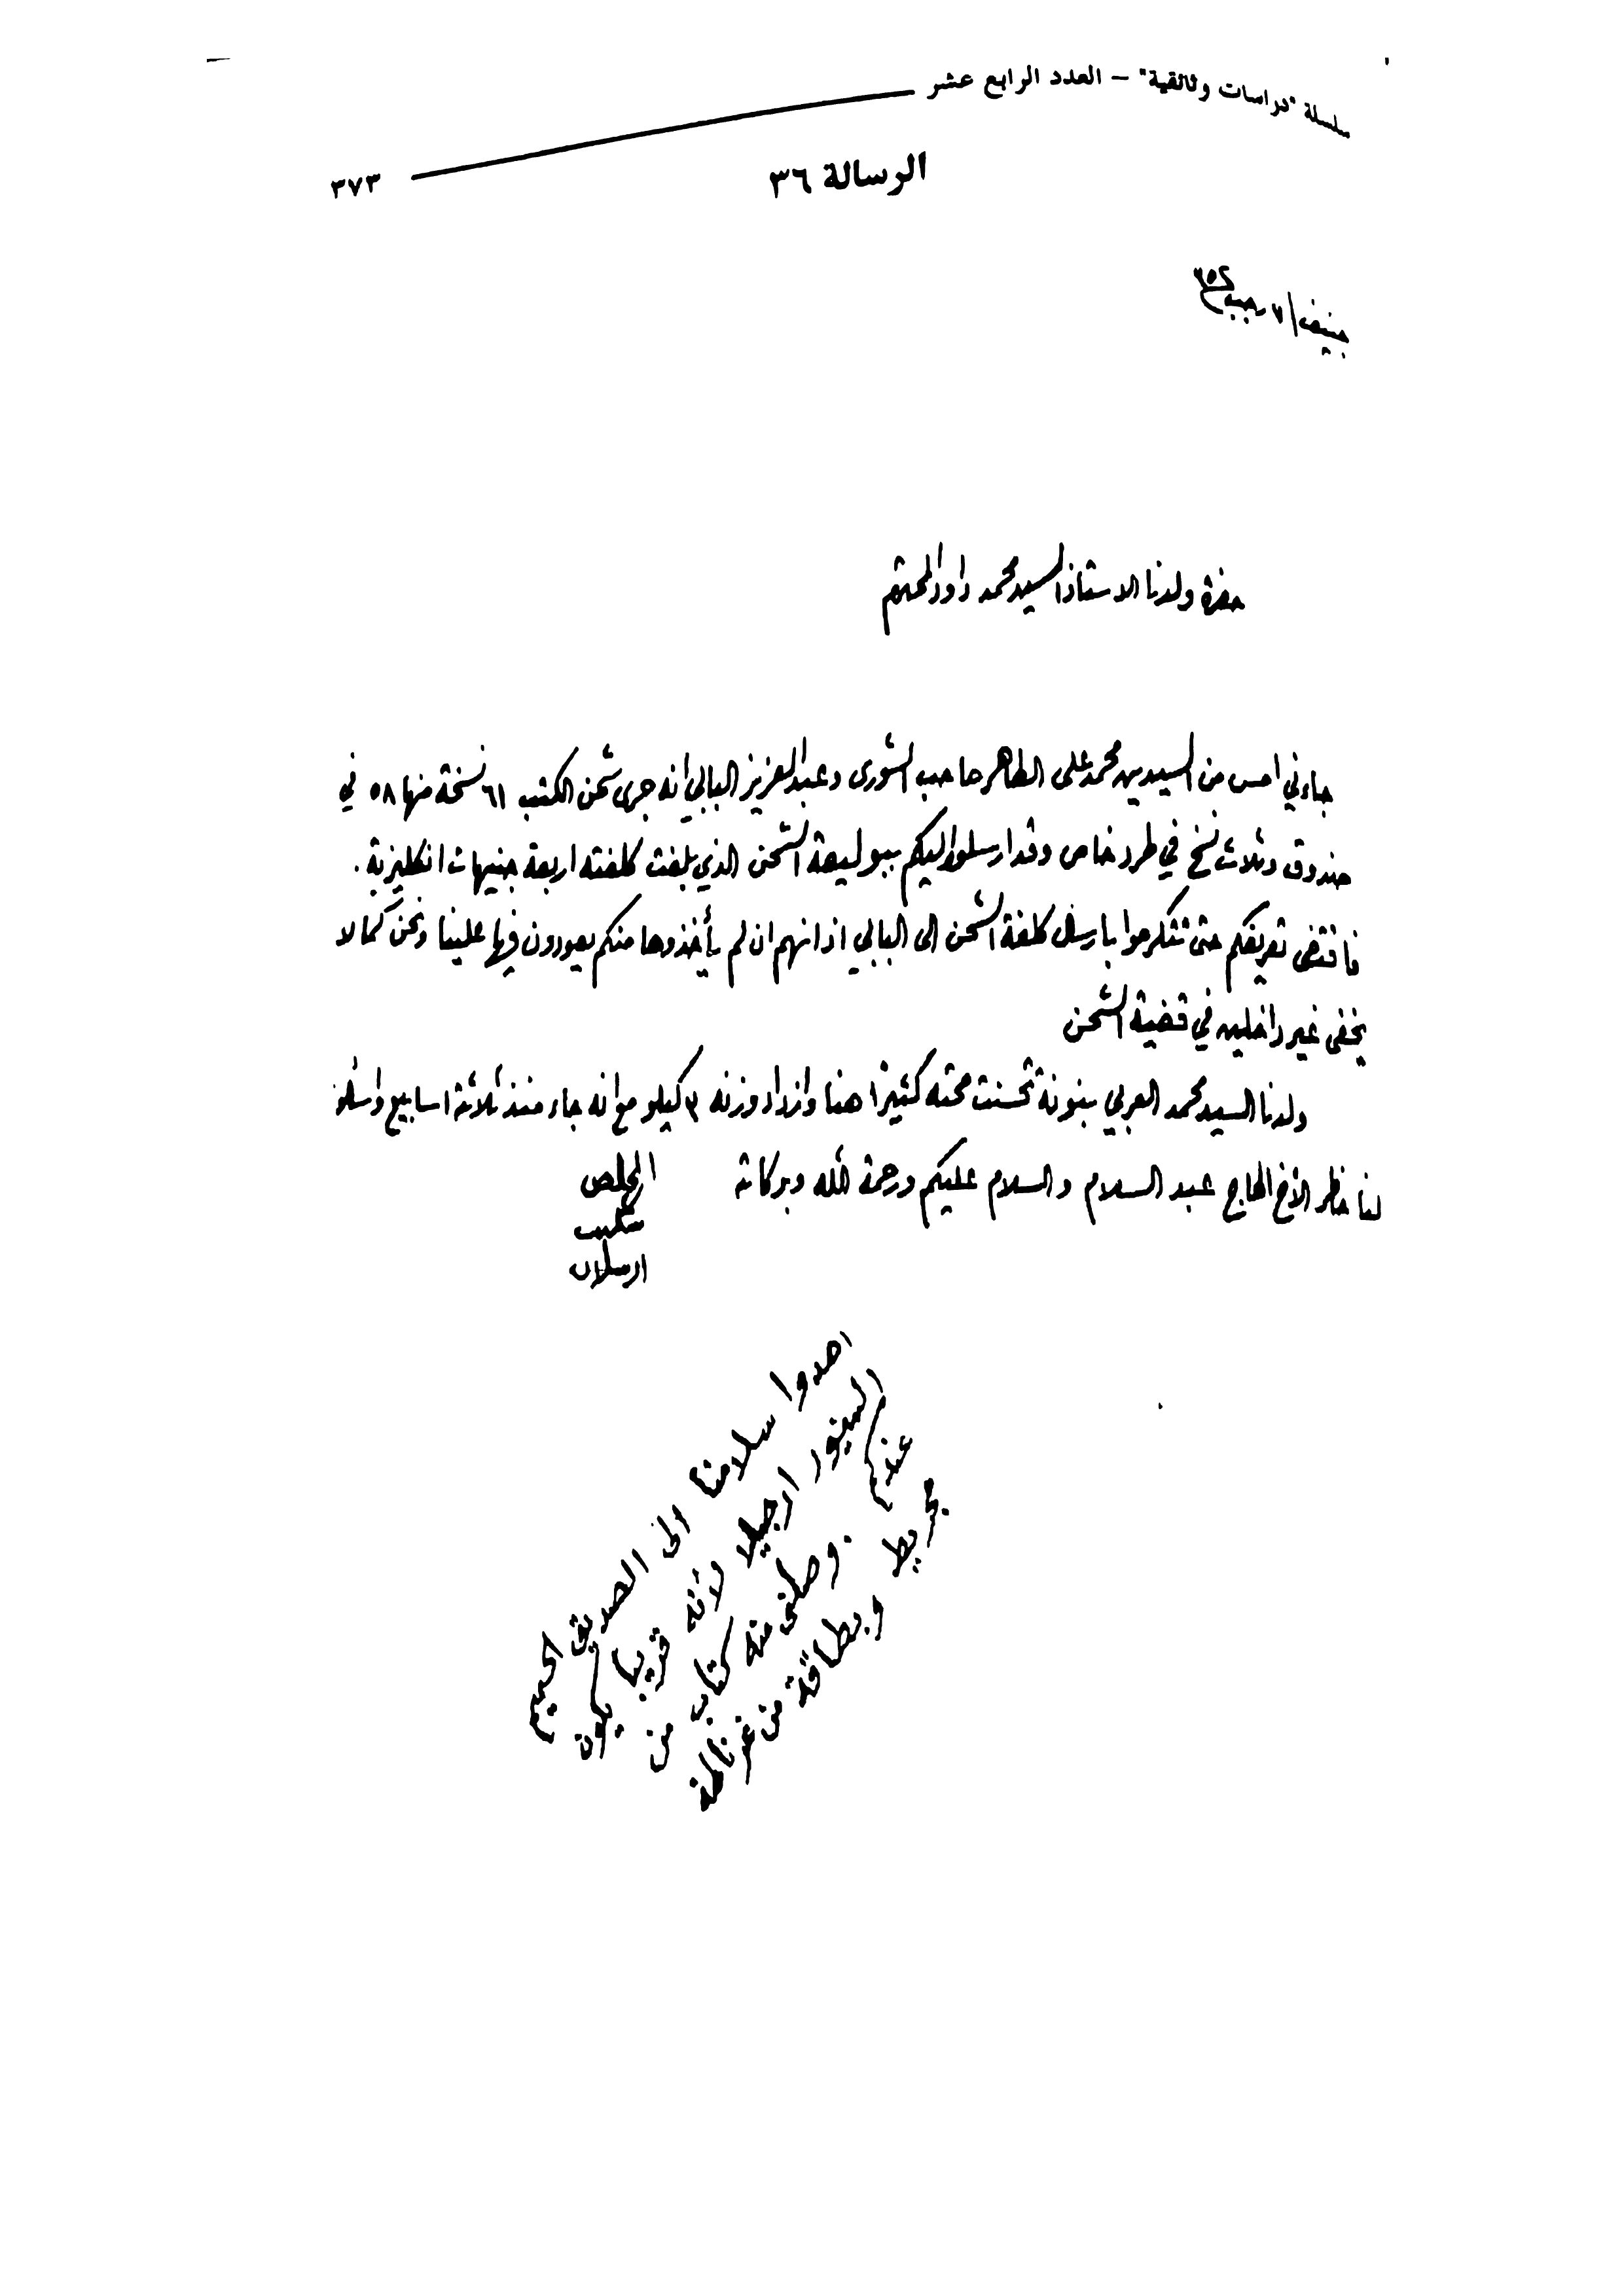 سلسلة "دراسات وثائقية" – العدد الرابع عشر
٣٧٣
الرسالة ٣٦
جنيف / ٧ رجب ٣٥٢
حضرة ولدنا الاستاذ السيد محمد داود المحترم
جاءني امس من السيدين محمد على الطاهر صاحب الشورى وعبد العزيز البابلي انه جرى شحن الكتب ٦١ نسخة منها ٥٨ في
صندوق وثلاث نسخ في طرد خاص وقد ارسلوا اليكم ببوليصة الشحن الذي بلغت كلفته اربعة جنيهات انكليزية .
فاقتضى تعريفكم حتى تتكرموا بارسال كلفة الشحن الى البابلي اذ انهم ان لم يأخذوها منكم يعودون فيها علينا ونحن كما لا
يخفى غير داخلين في قضية الشحن
ولدنا السيد محمد العربي بنونة تحسنت صحته كثيرا هنا وازداد وزنه ٣ كيلو مع انه جاء منذ ثلاثة اسابيع واسألوا
لنا خاطر الأخ الحاج عبد السلام والسلام عليكم ورحمة الله وبركاته
المخلص
شكيب
ارسلان
اهدوا سلامنا الى الصديق الحميم
السنيور ارجيلا لأنه قريبا يكون
عندكم . وصلني منه كتاب من
مجريط وبطاقة من غرناطة